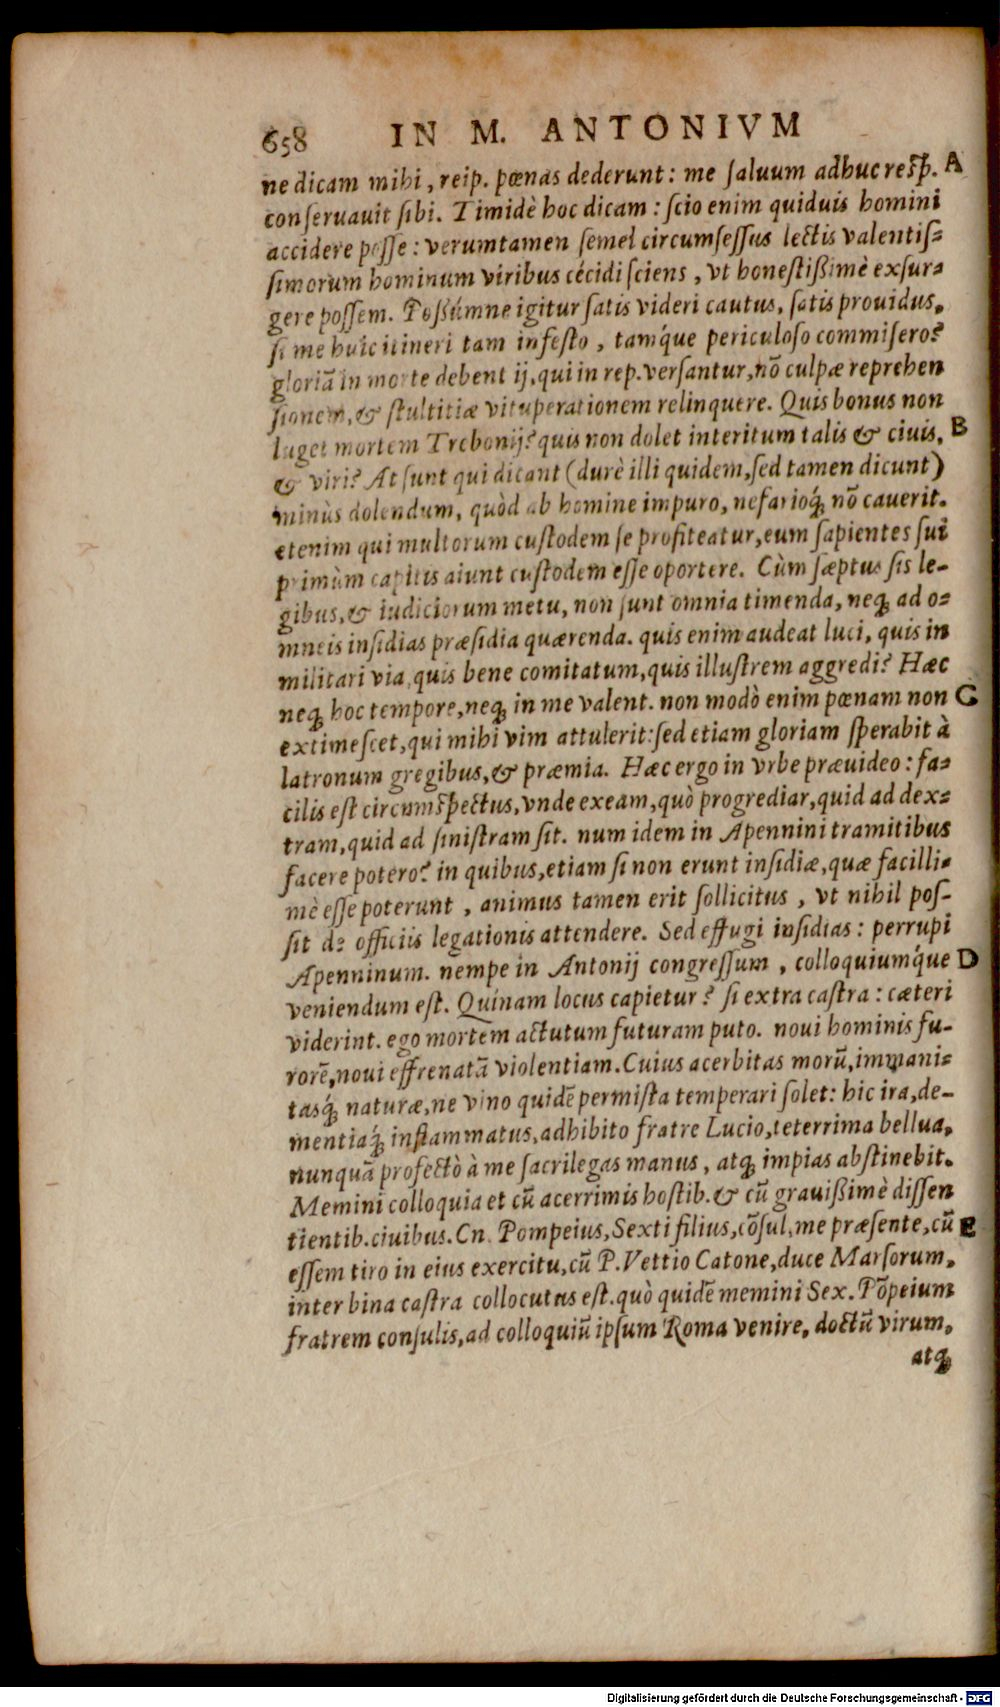 658 IN M. ANTONIVM
ne dicam mihi, reip. pœnas dederunt: me ſaluum adhuc reſp. A
conſeruauit ſibi. Timidè hoc dicam: ſcio enim quiduis homini
accidere poſſe: verumtamen ſemel circumſeſſus lectis valentiſ-
ſimorum hominum viribus cécidi ſciens, vt honeſtißimè exſur-
gere poſſem. Poßúmne igitur ſatis videri cautus, ſatis prouidus,
ſi me huic itineri tam infeſto, tamq́ue periculoſo commiſero?
gloriā in morte debent ij, qui in rep. verſantur, nō culpæ reprehen
ſionem, & ſtultitiæ vituperationem relinquere. Quis bonus non
luget mortem Trebonij? quis non dolet interitum talis & ciuis, B
& viri? At ſunt qui dicant (durè illi quidem, ſed tamen dicunt)
minùs dolendum, quòd ab homine impuro, nefarioq́; nō cauerit.
etenim qui multorum cuſtodem ſe profiteatur, eum ſapientes ſui
primùm capitis aiunt cuſtodem eſſe oportere. Cùm ſæptus ſis le-
gibus, & iudiciorum metu, non ſunt omnia timenda, neq; ad o-
mneis inſidias præſidia quærenda. quis enim audeat luci, quis in
militari via, quis bene comitatum, quis illuſtrem aggredi? Hæc
neq; hoc tempore, neq; in me valent. non modò enim pœnam non C
extimeſcet, qui mihi vim attulerit: ſed etiam gloriam ſperabit à
latronum gregibus, & præmia. Hæc ergo in vrbe præuideo: fa-
cilis eſt circumſpectus, vnde exeam, quò progrediar, quid ad dex-
tram, quid ad ſiniſtram ſit. num idem in Apennini tramitibus
facere potero? in quibus, etiam ſi non erunt inſidiæ, quæ facilli-
mè eſſe poterunt, animus tamen erit ſollicitus, vt nihil poſ-
ſit de officiis legationis attendere. Sed effugi inſidias: perrupi
Apenninum. nempe in Antonij congreſſum, colloquiumq́ue D
veniendum eſt. Quínam locus capietur? ſi extra caſtra: cæteri
viderint. ego mortem actutum futuram puto. noui hominis fu-
rorē, noui effrenatā violentiam. Cuius acerbitas morū, immani-
tasq́; naturæ, ne vino quidē permiſta temperari ſolet: hic ira, de-
mentiaq́; inflammatus, adhibito fratre Lucio, teterrima bellua,
nunquā profectò à me ſacrilegas manus, atq; impias abſtinebit.
Memini colloquia et cū acerrimis hoſtib. & cū grauißimè diſſen
tientib. ciuibus. Cn. Pompeius, Sexti filius, cōſul, me præſente, cū E
eſſem tiro in eius exercitu, cū P. Vettio Catone, duce Marſorum,
inter bina caſtra collocutus eſt. quò quidē memini Sex. Pōpeium
fratrem conſulis, ad colloquiū ipſum Roma venire, doctū virum,
atq;
Digitalisierung gefördert durch die Deutsche Forschungsgemeinschaft - DFG